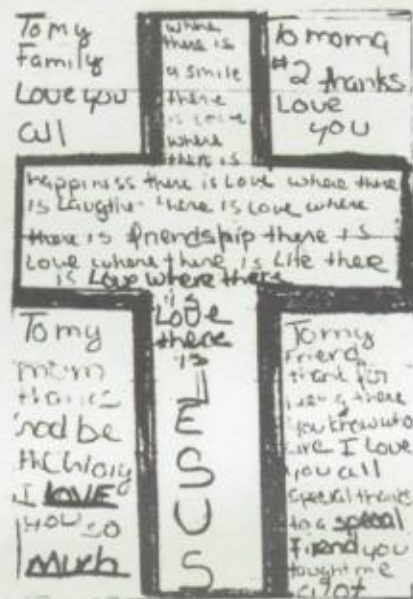 To my
Family
Love you
all
where
there is
a smile
there
is love
where
there is
To moma
#2 thanks
Love
you
happiness there is Love where there
is Laughter there is Love where
there is friendship there is
Love where there is Life there
is Love where there
is
Love
there
is
JESUS
To my
mom
thanks
and be
the Glory
I LOVE
you so
much
To my
Friend
thank for
being there
you know who
are I Love
you all
special thanks
to a special
Friend you
taught me
a lot